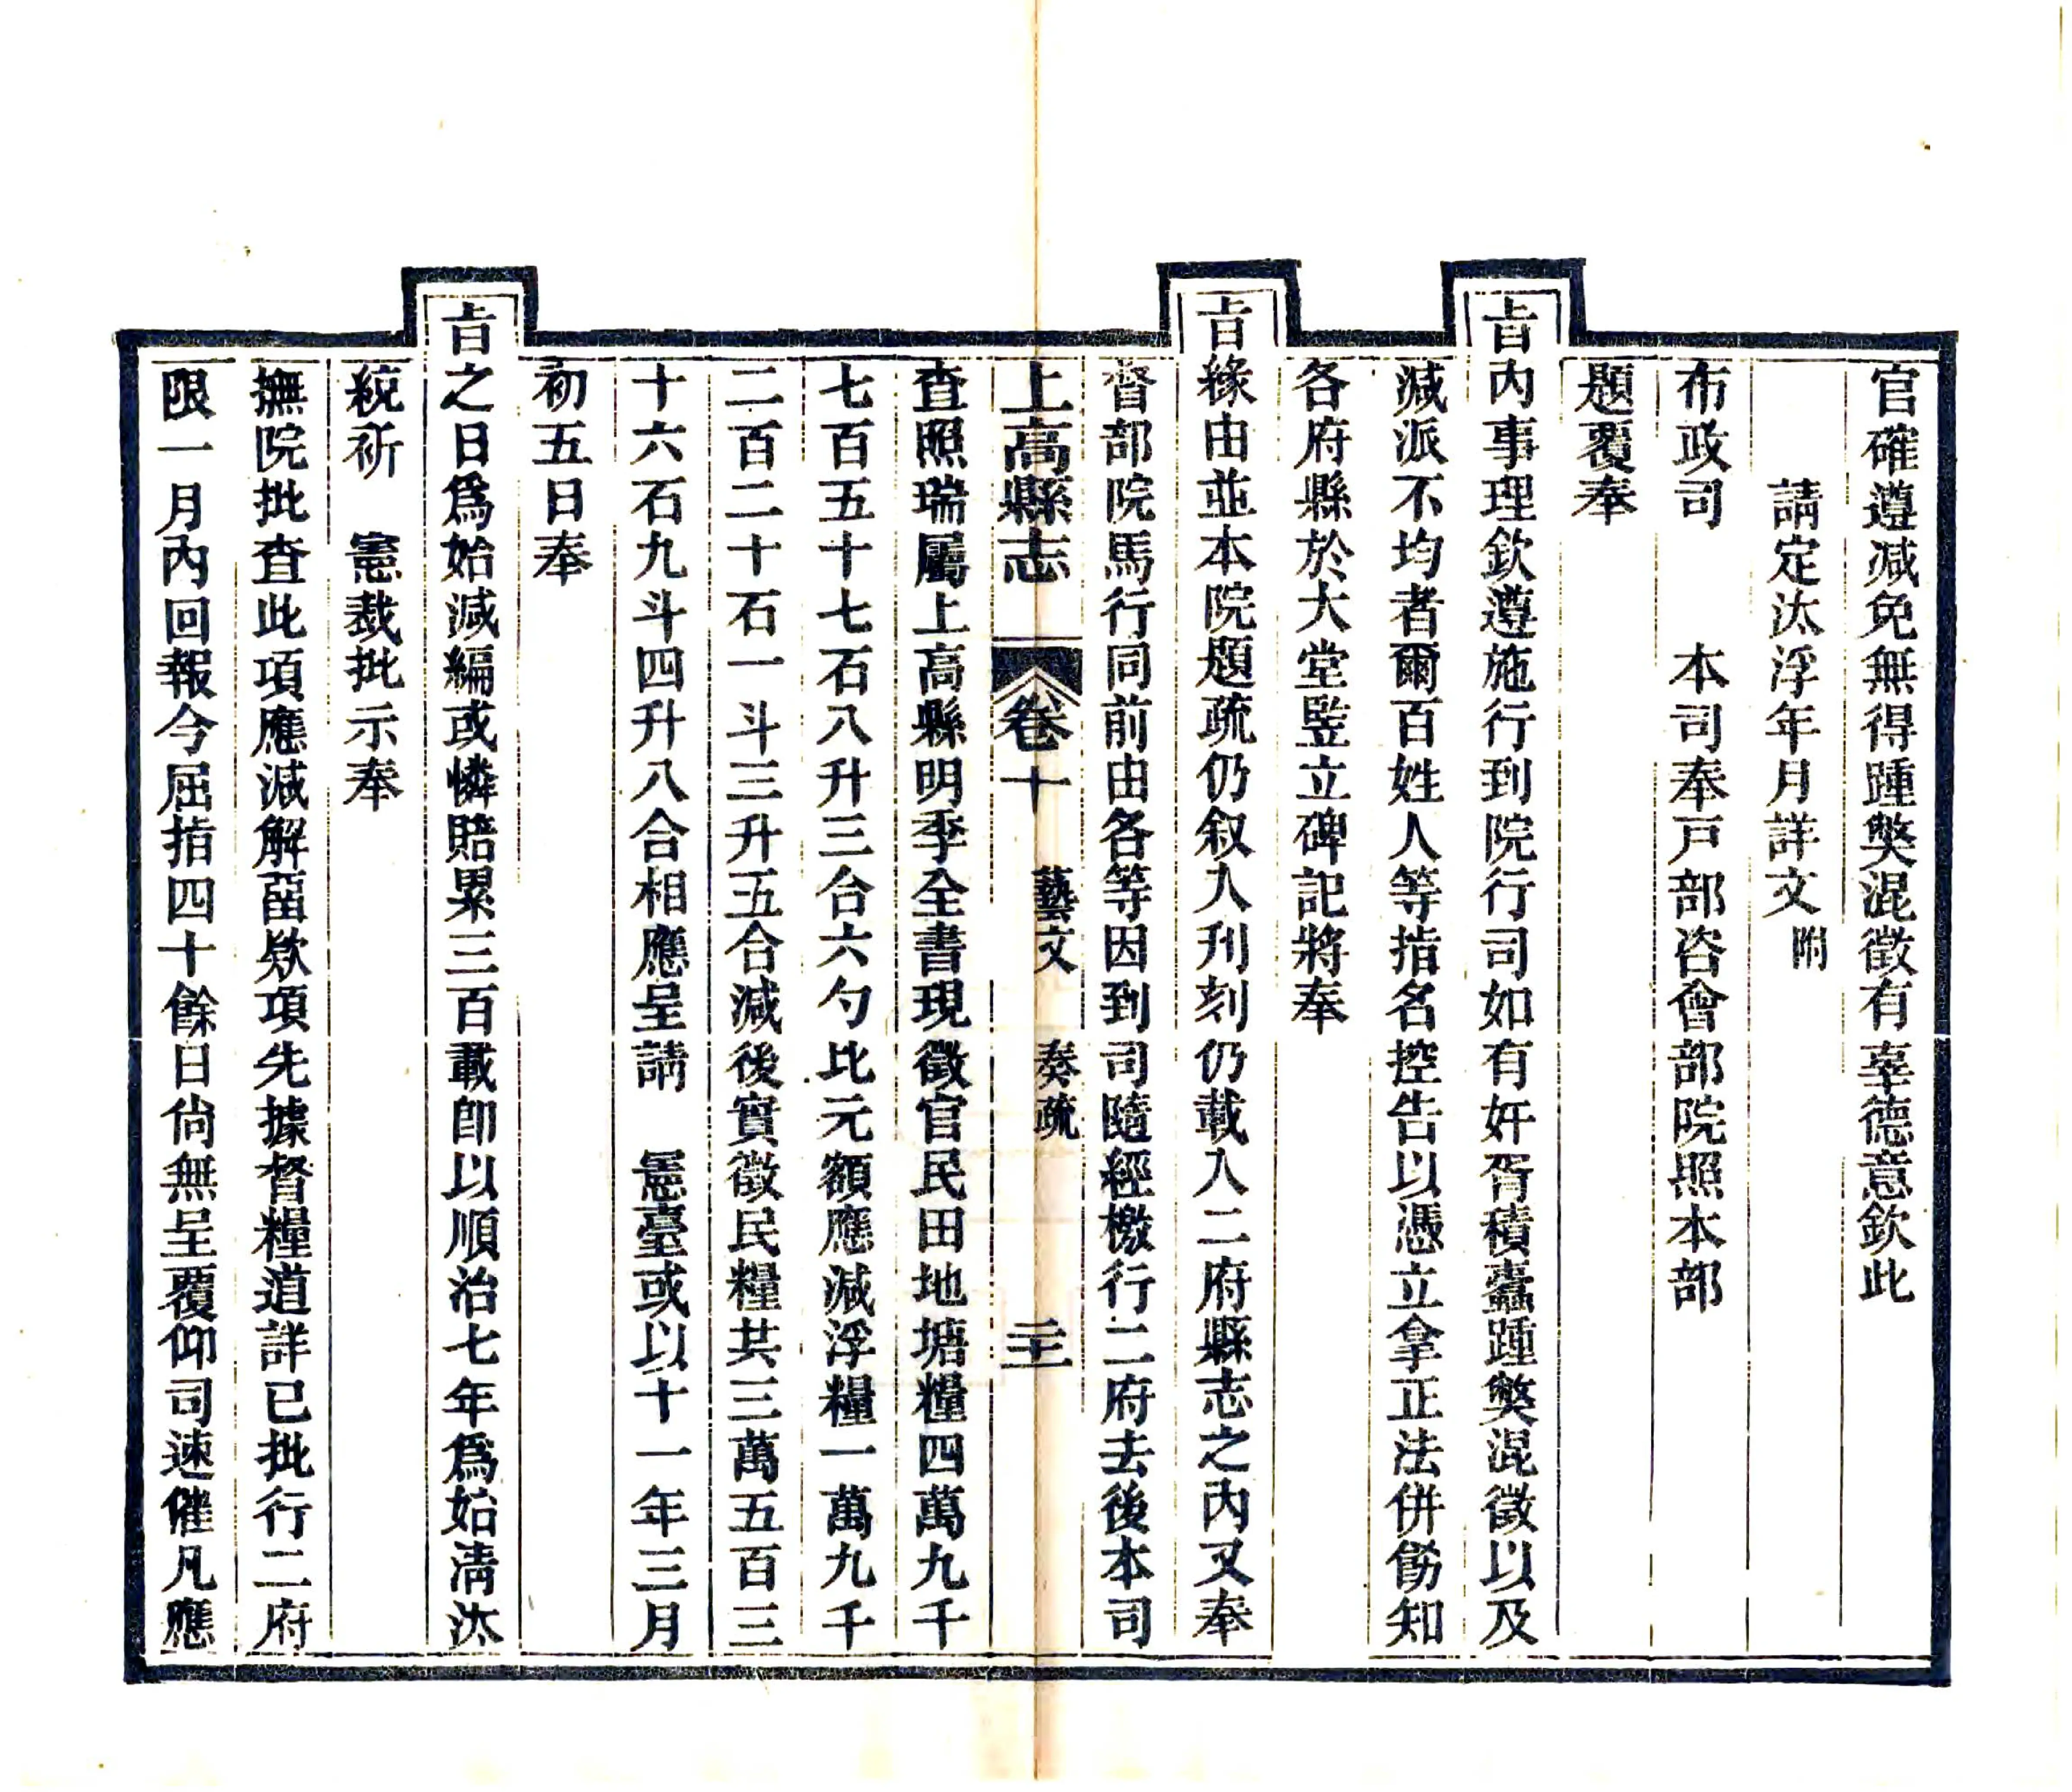 官確遵減免無得踵獘混徵有辜德意欽此
請定汰浮年月詳文附
布政司　　本司奉戸部咨會部院照本部
題覆奉
旨內事理欽遵施行到院行司如有奸胥積蠧踵獘混徵以及
減派不均者爾百姓人等指名控告以憑立拿正法併飭知
各府縣於大堂竪立碑記將奉
旨緣由並本院題疏仍叙入刋刻仍載入二府縣志之內又奉
督部院馬行同前由各等因到司隨經檄行二府去後本司
上高縣志　卷十　藝文　奏疏　三十二
查照瑞屬上高縣明季全書現徵官民田地塘糧四萬九千
七百五十七石八升三合六勺比元額應減浮糧一萬九千
二百二十石一斗三升五合減後實徵民糧共三萬五百三
十六石九斗四升八合相應呈請　憲臺或以十一年三月
初五日奉
旨之日爲始減編或憐賠累三百載即以順治七年爲始淸汰
統祈　憲裁批示奉
撫院批查此項應減解畱欵項先據督糧道詳已批行二府
限一月內回報今屈指四十餘日尙無呈覆仰司速催凡應